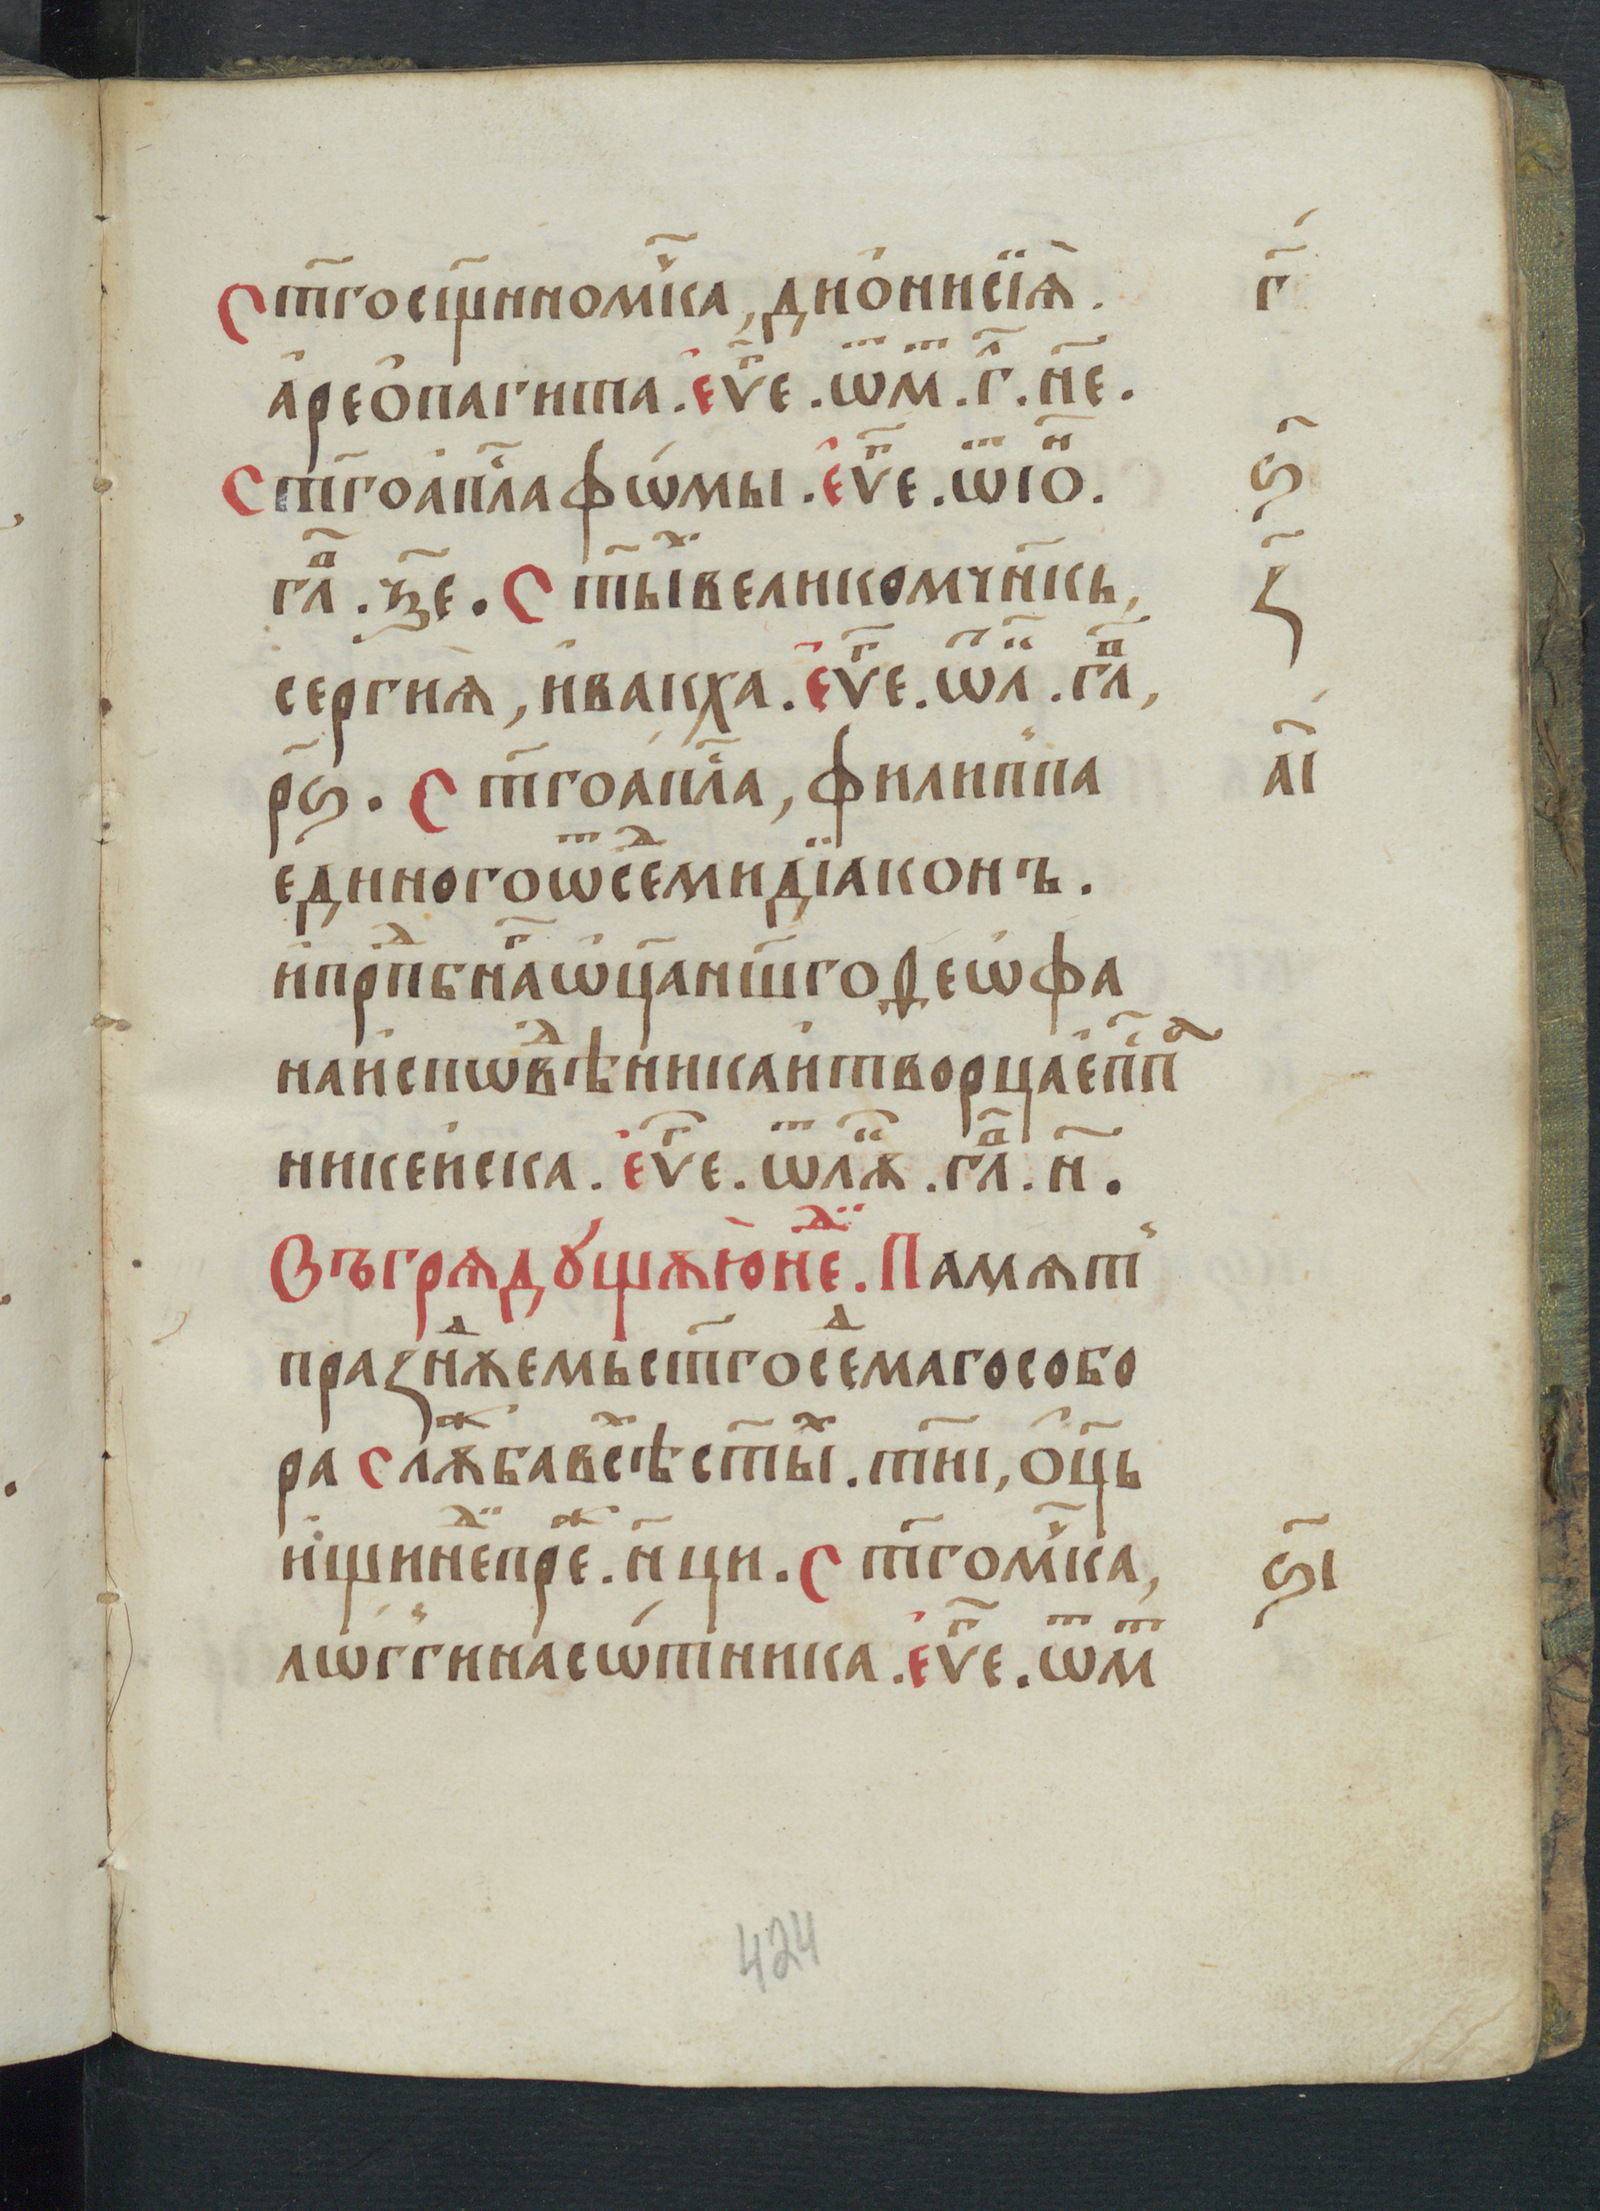 Ст҃госщ҃нном҃ч҇ка, дио́нисїѧ. г҃
а҆рео҆пагита. е҆ѵ҃ⷢ҇е. ѿмⷮ. гⷧ҇. н҃е.
Ст҃гоа҆пⷭ҇лафѡмы. е҆ѵ҃ⷢ҇е. ѿіѡⷩ҇. ѕ҃
глⷡ҇. ꙁ҃е. Ст҃ыⷯвеликомч҃нкь, з҃
сергиѧ, и҆вакха. е҆ѵ҃ⷢ҇е. ѿлⷦ҇. глⷡ҇,
р҃ѕ. Ст҃гоа҆пⷭ҇ла, филиппа а҃і
единогоѿсеⷣмидїаконъ.
и҆прⷣпбнⷢ҇аѡ҆ц҃аншг҃оѳеѡ҆фа
наи҆сповⷣѣникаи҆творцае҆пⷭ҇п
никеи҆ска. е҆ѵ҃ⷢ҇е. ѿлꙋⷦ҇. глⷡ҇. н҃.
Въгрѧдꙋщѫюнеⷣ. Памѧт
празнⷣꙋемьст҃госеⷣмагособо
ра слꙋⷤбавсѣⷯст҃ыⷯ. тн҃і, о҆ц҃ь
и҆щинеⷣпреⷤ. н҃ци. Ст҃гомⷱ҇ка, ѕ҃і
лѡггинасѡтника. е҆ѵ҃ⷢ҇е. ѿмⷮ
424